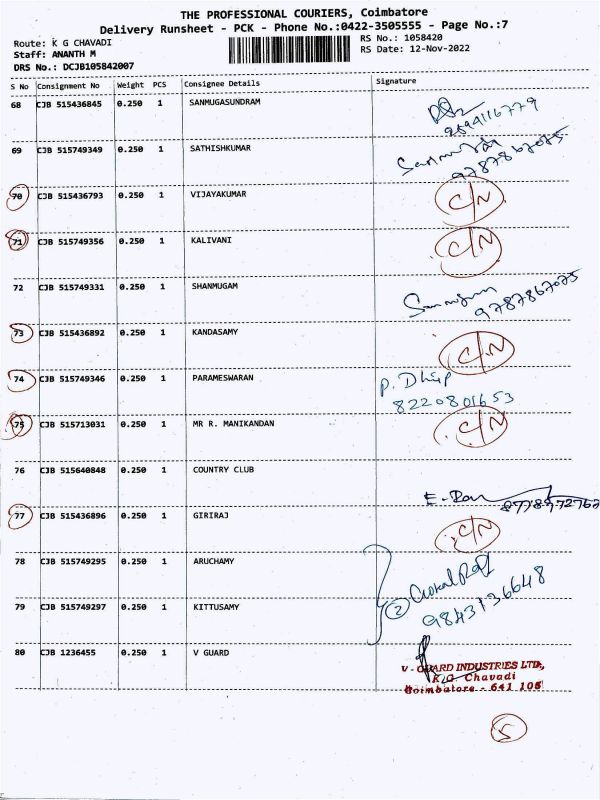 THE PROFESSIONAL COURIERS, Coimbatore
Delivery Runsheet - PCK - Phone No.:0422-3505555 - Page No.:7
Route: K G CHAVADI
Staff: ANANTH M
DRS No.: DCJB105842007
RS No.: 1058420
RS Date: 12-Nov-2022
S No Consignment No Weight PCS Consignee Details Signature
68 CJB 515436845 0.250 1 SANMUGASUNDRAM
69 CJB 515749349 0.250 1 SATHISHKUMAR
9787867075
70 CJB 515436793 0.250 1 VIJAYAKUMAR C/N
71 CJB 515749356 0.250 1 KALIVANI C/N
72 CJB 515749331 0.250 1 SHANMUGAM
9787867075
73 CJB 515436892 0.250 1 KANDASAMY C/N
74 CJB 515749346 0.250 1 PARAMESWARAN P. Dhip
8220801653
75 CJB 515713031 0.250 1 MR R. MANIKANDAN C/N
76 CJB 515640848 0.250 1 COUNTRY CLUB
77 CJB 515436896 0.250 1 GIRIRAJ C/N
78 CJB 515749295 0.250 1 ARUCHAMY
79 CJB 515749297 0.250 1 KITTUSAMY 2
9843136648
80 CJB 1236455 0.250 1 V GUARD
V - GUARD INDUSTRIES LTD,
K.G. Chavadi
Coimbatore - 641 105
5